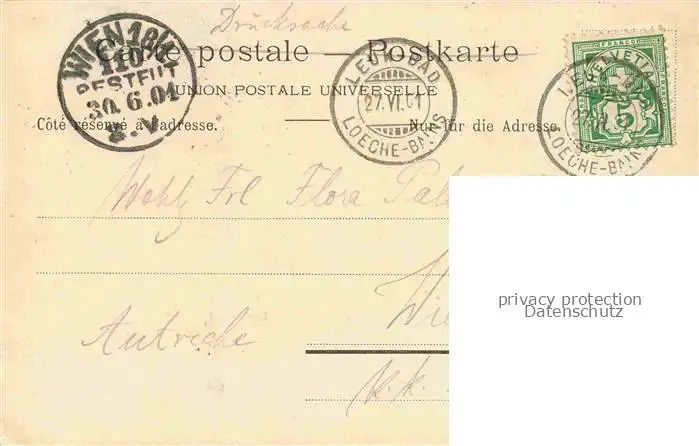 Drucksache
Carte postale — Postkarte
UNION POSTALE UNIVERSELLE
Côté réservé à l'adresse.
Nur für die Adresse.
WIEN 18/1
110
BESTELLT
30.6.01
LEUK-BAD
27.VI.01
LOECHE-BAINS
FRANCO
HELVETIA
5
LOECHE-BAINS
Wohl Frl Flora
Autriche
k.k.
privacy protection
Datenschutz